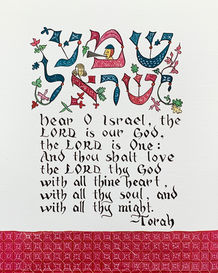 שמע
ישראל
hear O Israel, the
LORD is our God,
the LORD is One:
And thou shalt love
the LORD thy God
with all thine heart,
with all thy soul, and
with all thy might.
~Torah